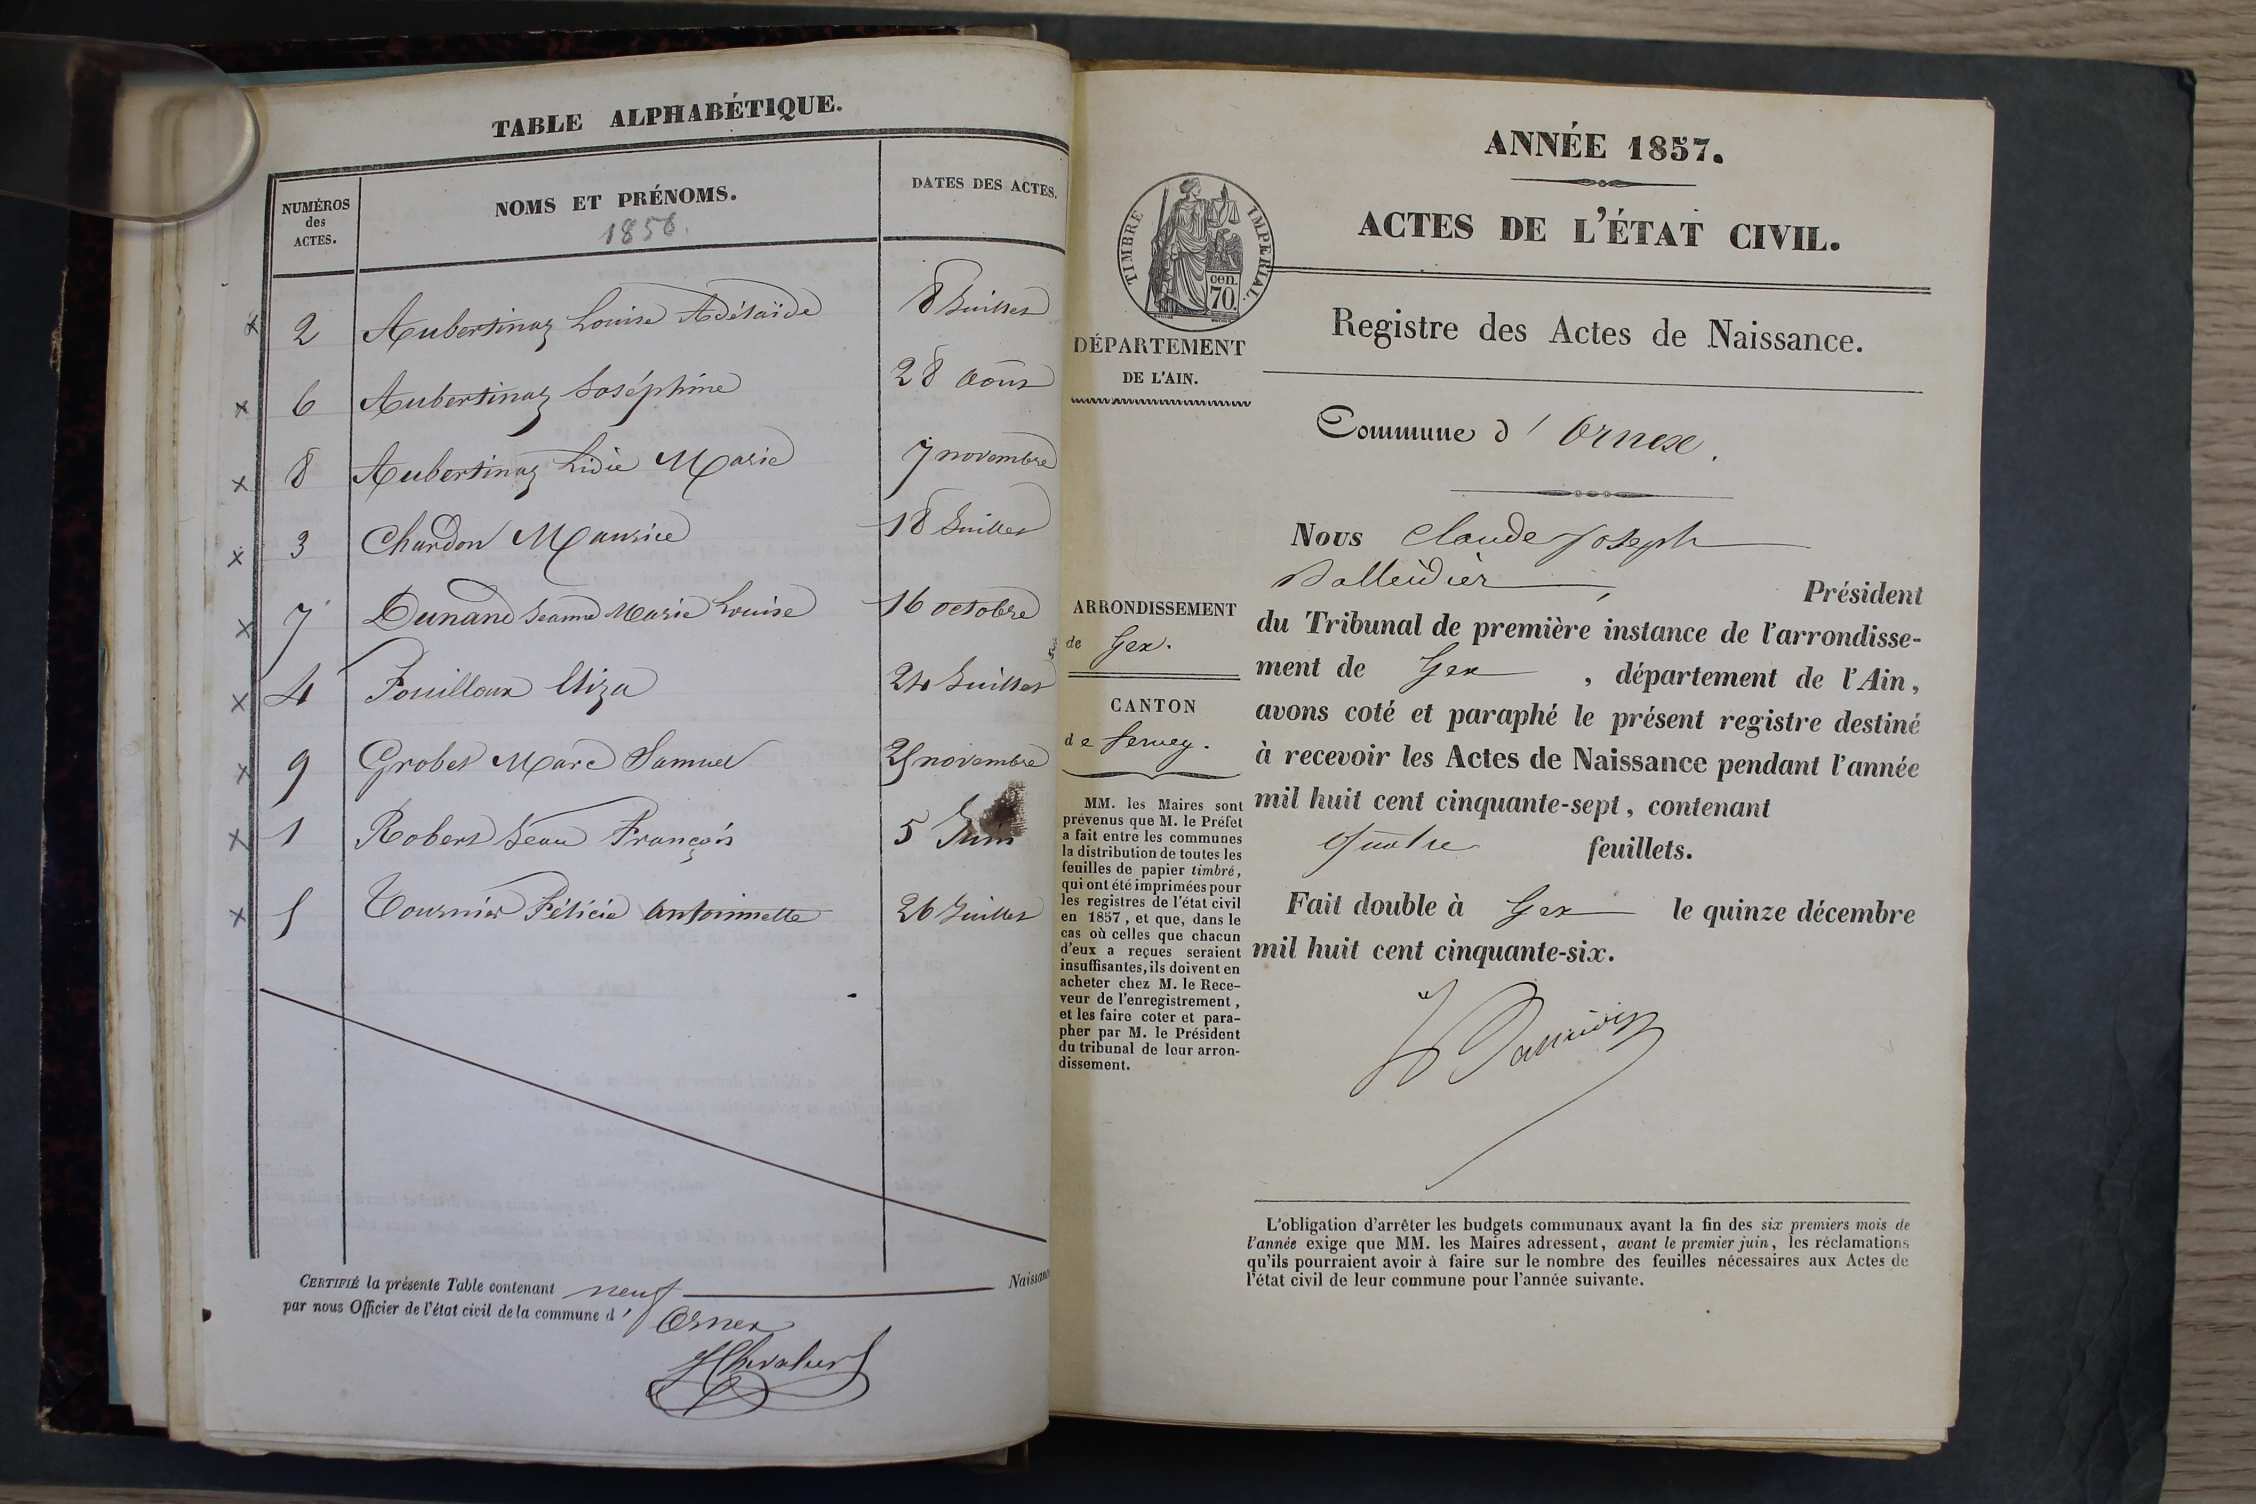 TABLE ALPHABÉTIQUE.
NUMÉROS des ACTES.
NOMS ET PRÉNOMS.
DATES DES ACTES.
1856.
2 Aubertinaz Louise Adélaïde 8 Juillet
6 Aubertinaz Joséphine 28 Août
8 Aubertinaz Lidie Marie 7 novembre
3 Chardon Maurice 18 Juillet
7 Dunand Jeanne Marie Louise 16 octobre
4 Fouilloux Eliza 24 Juillet
9 Grobet Marc Samuel 25 novembre
1 Robert Jean François 5 Juin
5 Tournier Félicie Antoinnette 26 Juillet
CERTIFIÉ la présente Table contenant neuf Naissanc
par nous Officier de l'état civil de la commune d' Ornex
ANNÉE 1857.
ACTES DE L'ÉTAT CIVIL.
TIMBRE IMPERIAL.
cen.
70.
DÉPARTEMENT
DE L'AIN.
Registre des Actes de Naissance.
Commune d' Ornex.
ARRONDISSEMENT
de Gex.
CANTON
de Ferney.
MM. les Maires sont
prévenus que M. le Préfet
a fait entre les communes
la distribution de toutes les
feuilles de papier timbré,
qui ont été imprimées pour
les registres de l'état civil
en 1857, et que, dans le
cas où celles que chacun
d'eux a reçues seraient
insuffisantes, ils doivent en
acheter chez M. le Rece-
veur de l'enregistrement,
et les faire coter et para-
pher par M. le Président
du tribunal de leur arron-
dissement.
Nous Claude Joseph
Président
du Tribunal de première instance de l'arrondisse-
ment de Gex, département de l'Ain,
avons coté et paraphé le présent registre destiné
à recevoir les Actes de Naissance pendant l'année
mil huit cent cinquante-sept, contenant
quatre feuillets.
Fait double à Gex le quinze décembre
mil huit cent cinquante-six.
L'obligation d'arrêter les budgets communaux avant la fin des six premiers mois de
l'année exige que MM. les Maires adressent, avant le premier juin, les réclamations
qu'ils pourraient avoir à faire sur le nombre des feuilles nécessaires aux Actes de
l'état civil de leur commune pour l'année suivante.